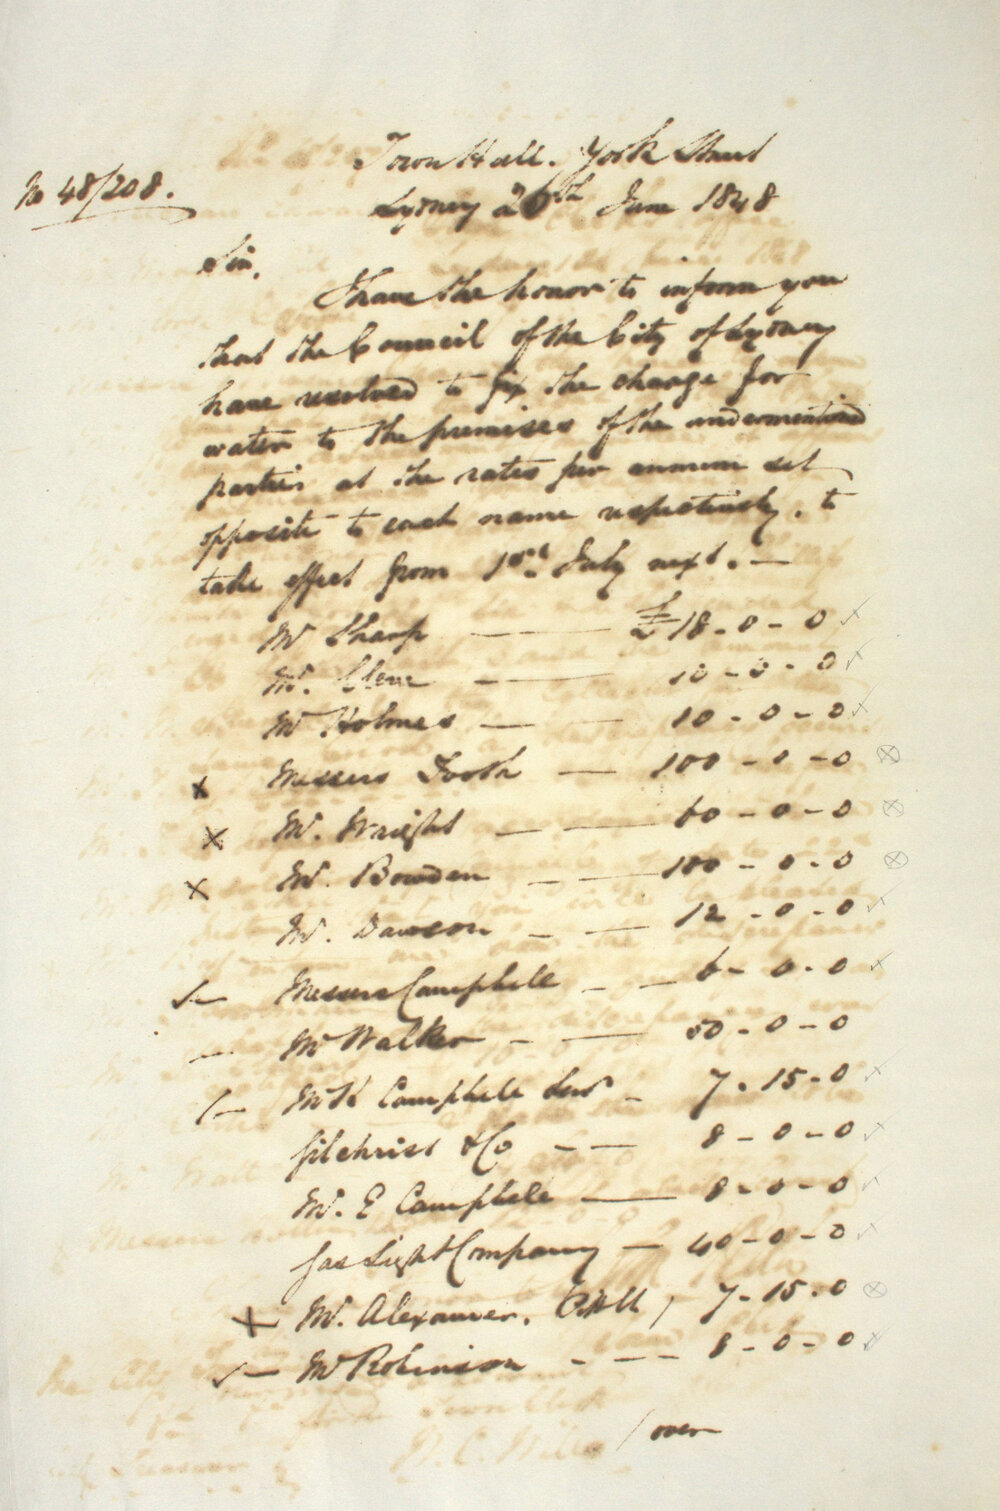 Town Hall. York Street
No 48/208.
Sydney 20th June 1848
Sir,
I have the honor to inform you
that the Council of the City of Sydney
have resolved to fix the charge for
water to the premises of the undermentioned
parties at the rates per annum set
opposite to each name respectively, to
take effect from 1st July next. —
Mr Sharp — £18 - 0 - 0
Mr. — 10 - 0 - 0
Mr Holmes — — 10 - 0 - 0
x Messers Tooth — 100 - 0 - 0
x Mr. Wright — — 60 - 0 - 0
x Mr. Bowden — — 100 - 0 - 0
Mr. Dawson — — 12 - 0 - 0
Messers Campbell — — 6 - 0 - 0
Mr Walker — — 50 - 0 - 0
Mr Campbell — 7 - 15 - 0
Gilchrist & Co — — 8 - 0 - 0
Mr. E Campbell — 8 - 0 - 0
Gas Light Company — 40 - 0 - 0
x Mr. Alexander. 7 - 15 - 0
Mr Robinson - — — 8 - 0 - 0
/over